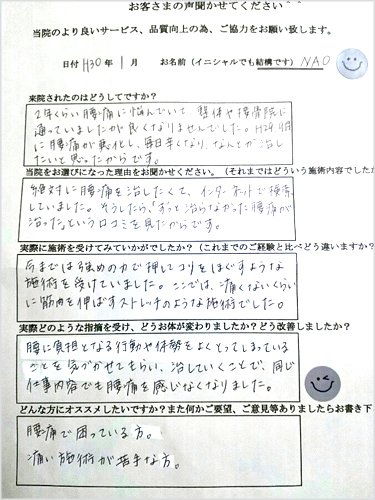 お客さまの声聞かせてください^^
当院のより良いサービス、品質向上の為、ご協力をお願い致します。
日付 H30年 1月 お名前（イニシャルでも結構です）NAO
来院されたのはどうしてですか？
2年くらい腰痛に悩んでいて、整体や接骨院に
通っていましたが良くなりませんでした。H29
に腰痛が悪化し、毎日辛くなり、なんとか治し
たいと思ったからです。
当院をお選びになった理由をお聞かせください。（それまではどういう施術内容でしたか
絶対に腰痛を治したくて、インターネットで検索
していました。そうしたら、「ずっと治らなかった腰痛が
治った」という口コミを見たからです。
実際に施術を受けてみていかがでしたか？（これまでのご経験と比べどう違いますか？
今までは強めの力で押してコリをほぐすような
施術を受けていました。ここでは、痛くないくらい
に筋肉を伸ばすストレッチのような施術でした。
実際どのような指摘を受け、どうお体が変わりましたか？どう改善しましたか？
腰に負担となる行動や体勢をよくとってしまっている
ことを気づかせてもらい、治していくことで、同じ
仕事内容でも腰痛を感じなくなりました。
どんな方にオススメしたいですか？また何かご要望、ご意見等ありましたらお書き下
腰痛で困っている方。
痛い施術が苦手な方。